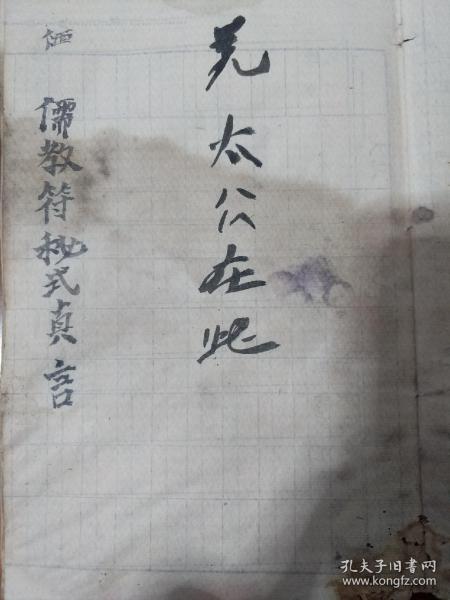 羌太公在此
儒教符秘式真言
孔夫子旧书网
www.kongfz.com